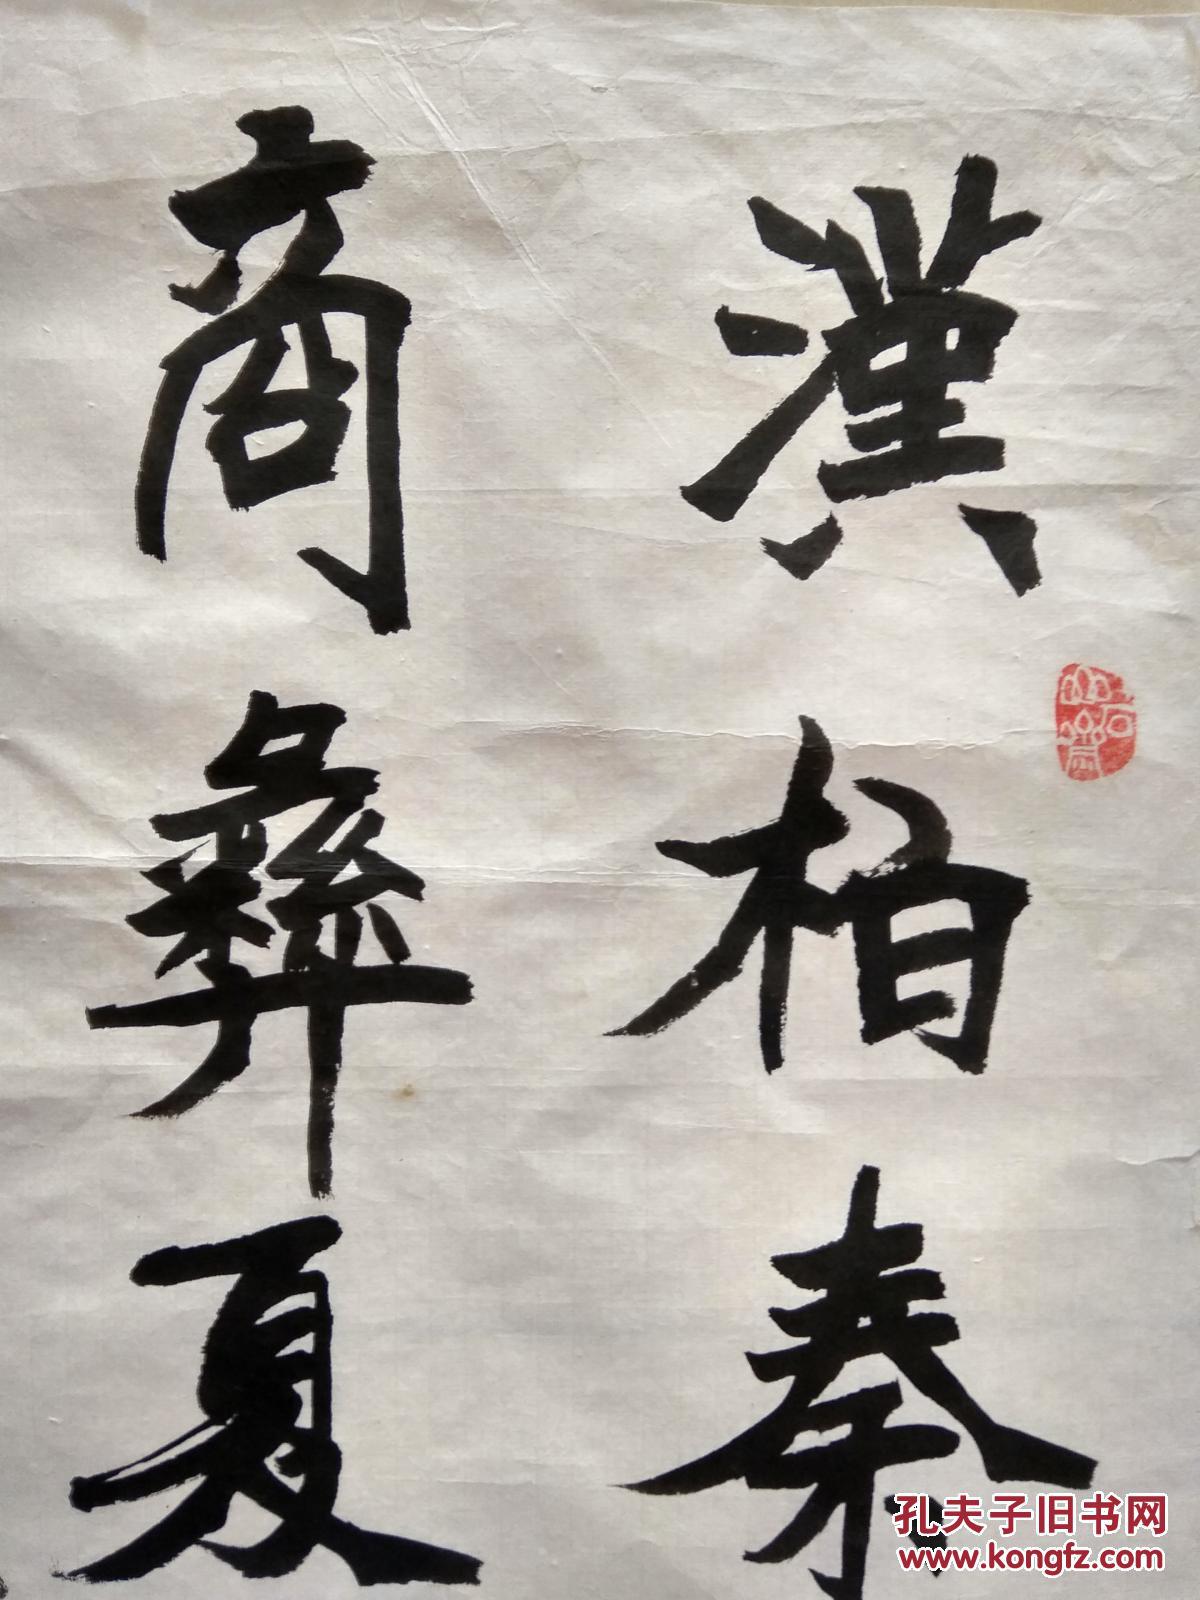 漢柏秦
商彝夏
孔夫子旧书网
www.kongfz.com